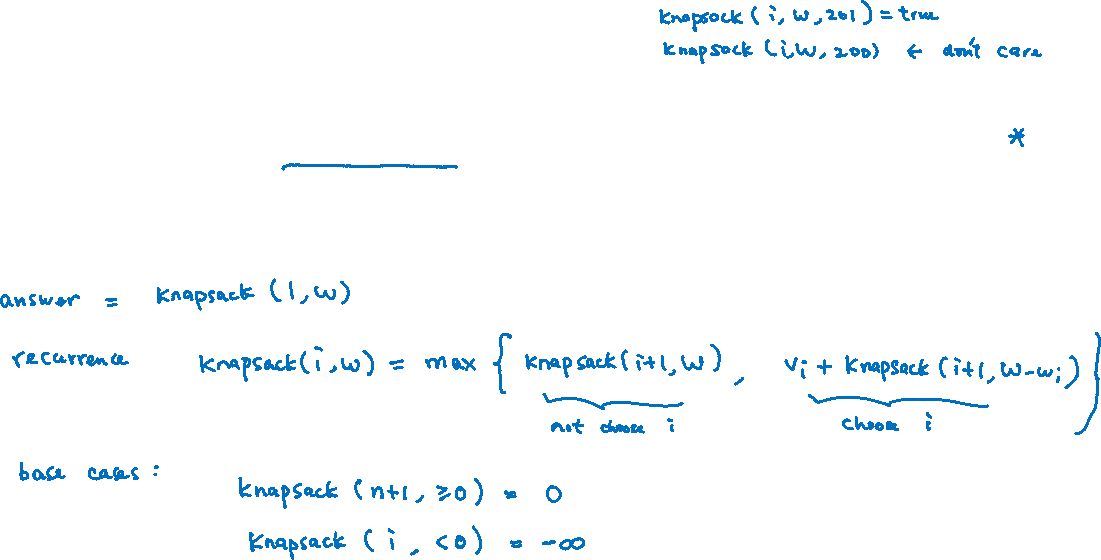 Knapsack (i, W, 201) = true
Knapsack (i, W, 200) ← don't care
*
answer = Knapsack (1, W)
recurrence Knapsack (i, W) = max { Knapsack (i+1, W) , vi + Knapsack (i+1, W-wi) }
not choose i choose i
base cases :
Knapsack (n+1, ≥0) = 0
Knapsack (i, <0) = -∞